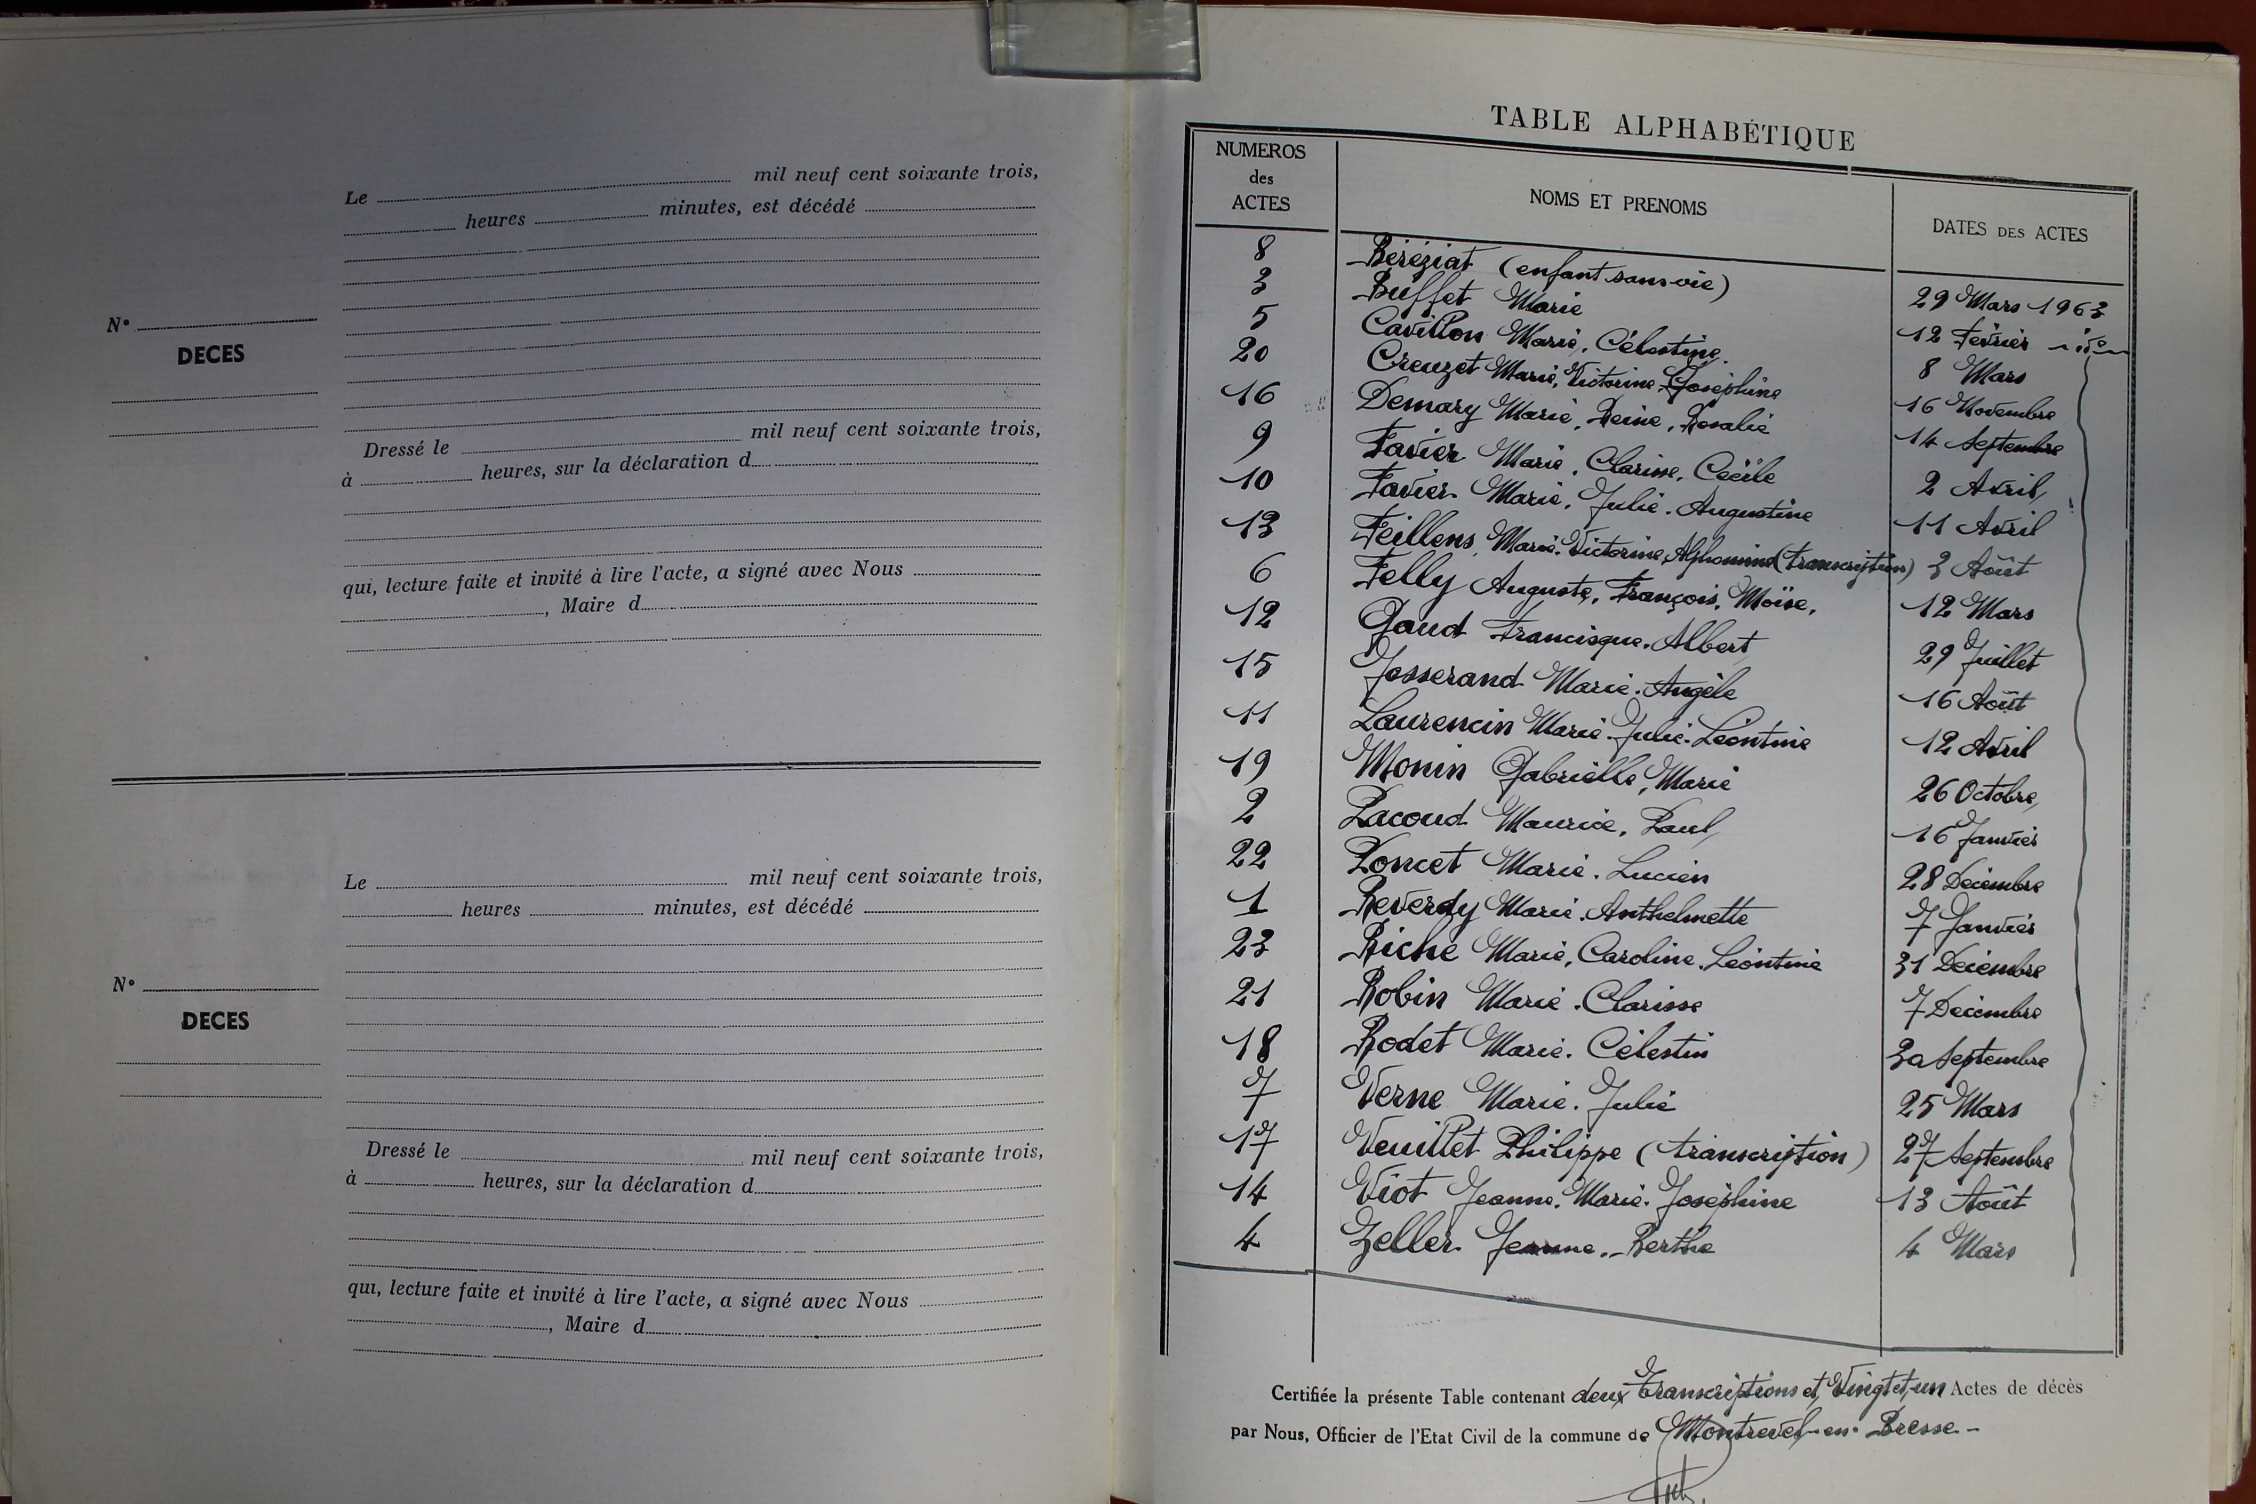 Le mil neuf cent soixante trois,
heures minutes, est décédé
N°
DECES
Dressé le mil neuf cent soixante trois,
à heures, sur la déclaration d
qui, lecture faite et invité à lire l'acte, a signé avec Nous
, Maire d
Le mil neuf cent soixante trois,
heures minutes, est décédé
N°
DECES
Dressé le mil neuf cent soixante trois,
à heures, sur la déclaration d
qui, lecture faite et invité à lire l'acte, a signé avec Nous
, Maire d
TABLE ALPHABÉTIQUE
NUMEROS des ACTES NOMS ET PRENOMS DATES DES ACTES
8 Béréziat (enfant sans vie) 29 Mars 1963
3 Buffet Marie 12 Février
5 Cavillon Marie, Célestine. 8 Mars
20 Creuzet Marie, Victorine, Joséphine 16 Novembre
16 Demary Marie, Reine, Rosalie 14 Septembre
9 Favier Marie, Clarisse, Cécile 2 Avril
10 Favier Marie, Julie, Augustine 11 Avril
13 Feillens Marie, Victorine, (transcription) 3 Août
6 Felly Auguste, François, Moïse, 12 Mars
12 Gaud Francisque, Albert 29 Juillet
15 Josserand Marie, Angèle 16 Août
11 Laurencin Marie, Julie, Léontine 12 Avril
19 Monin Gabrielle, Marie 26 Octobre
2 Pacoud Maurice, Paul 16 Janvier
22 Poncet Marie, Lucien 28 Décembre
1 Reverdy Marie, Anthelmette 7 Janvier
23 Riche Marie, Caroline, Léontine 31 Décembre
21 Robin Marie, Clarisse 7 Décembre
18 Rodet Marie, Célestin 30 Septembre
7 Verne Marie, Julie 25 Mars
17 Veuillet Philippe (transcription) 27 Septembre
14 Viot Jeanne, Marie, Joséphine 13 Août
4 Zeller Jeanne, Berthe 4 Mars
Certifiée la présente Table contenant deux Transcriptions et Vingt et un Actes de décès
par Nous, Officier de l'Etat Civil de la commune de Montrevel-en-Bresse-